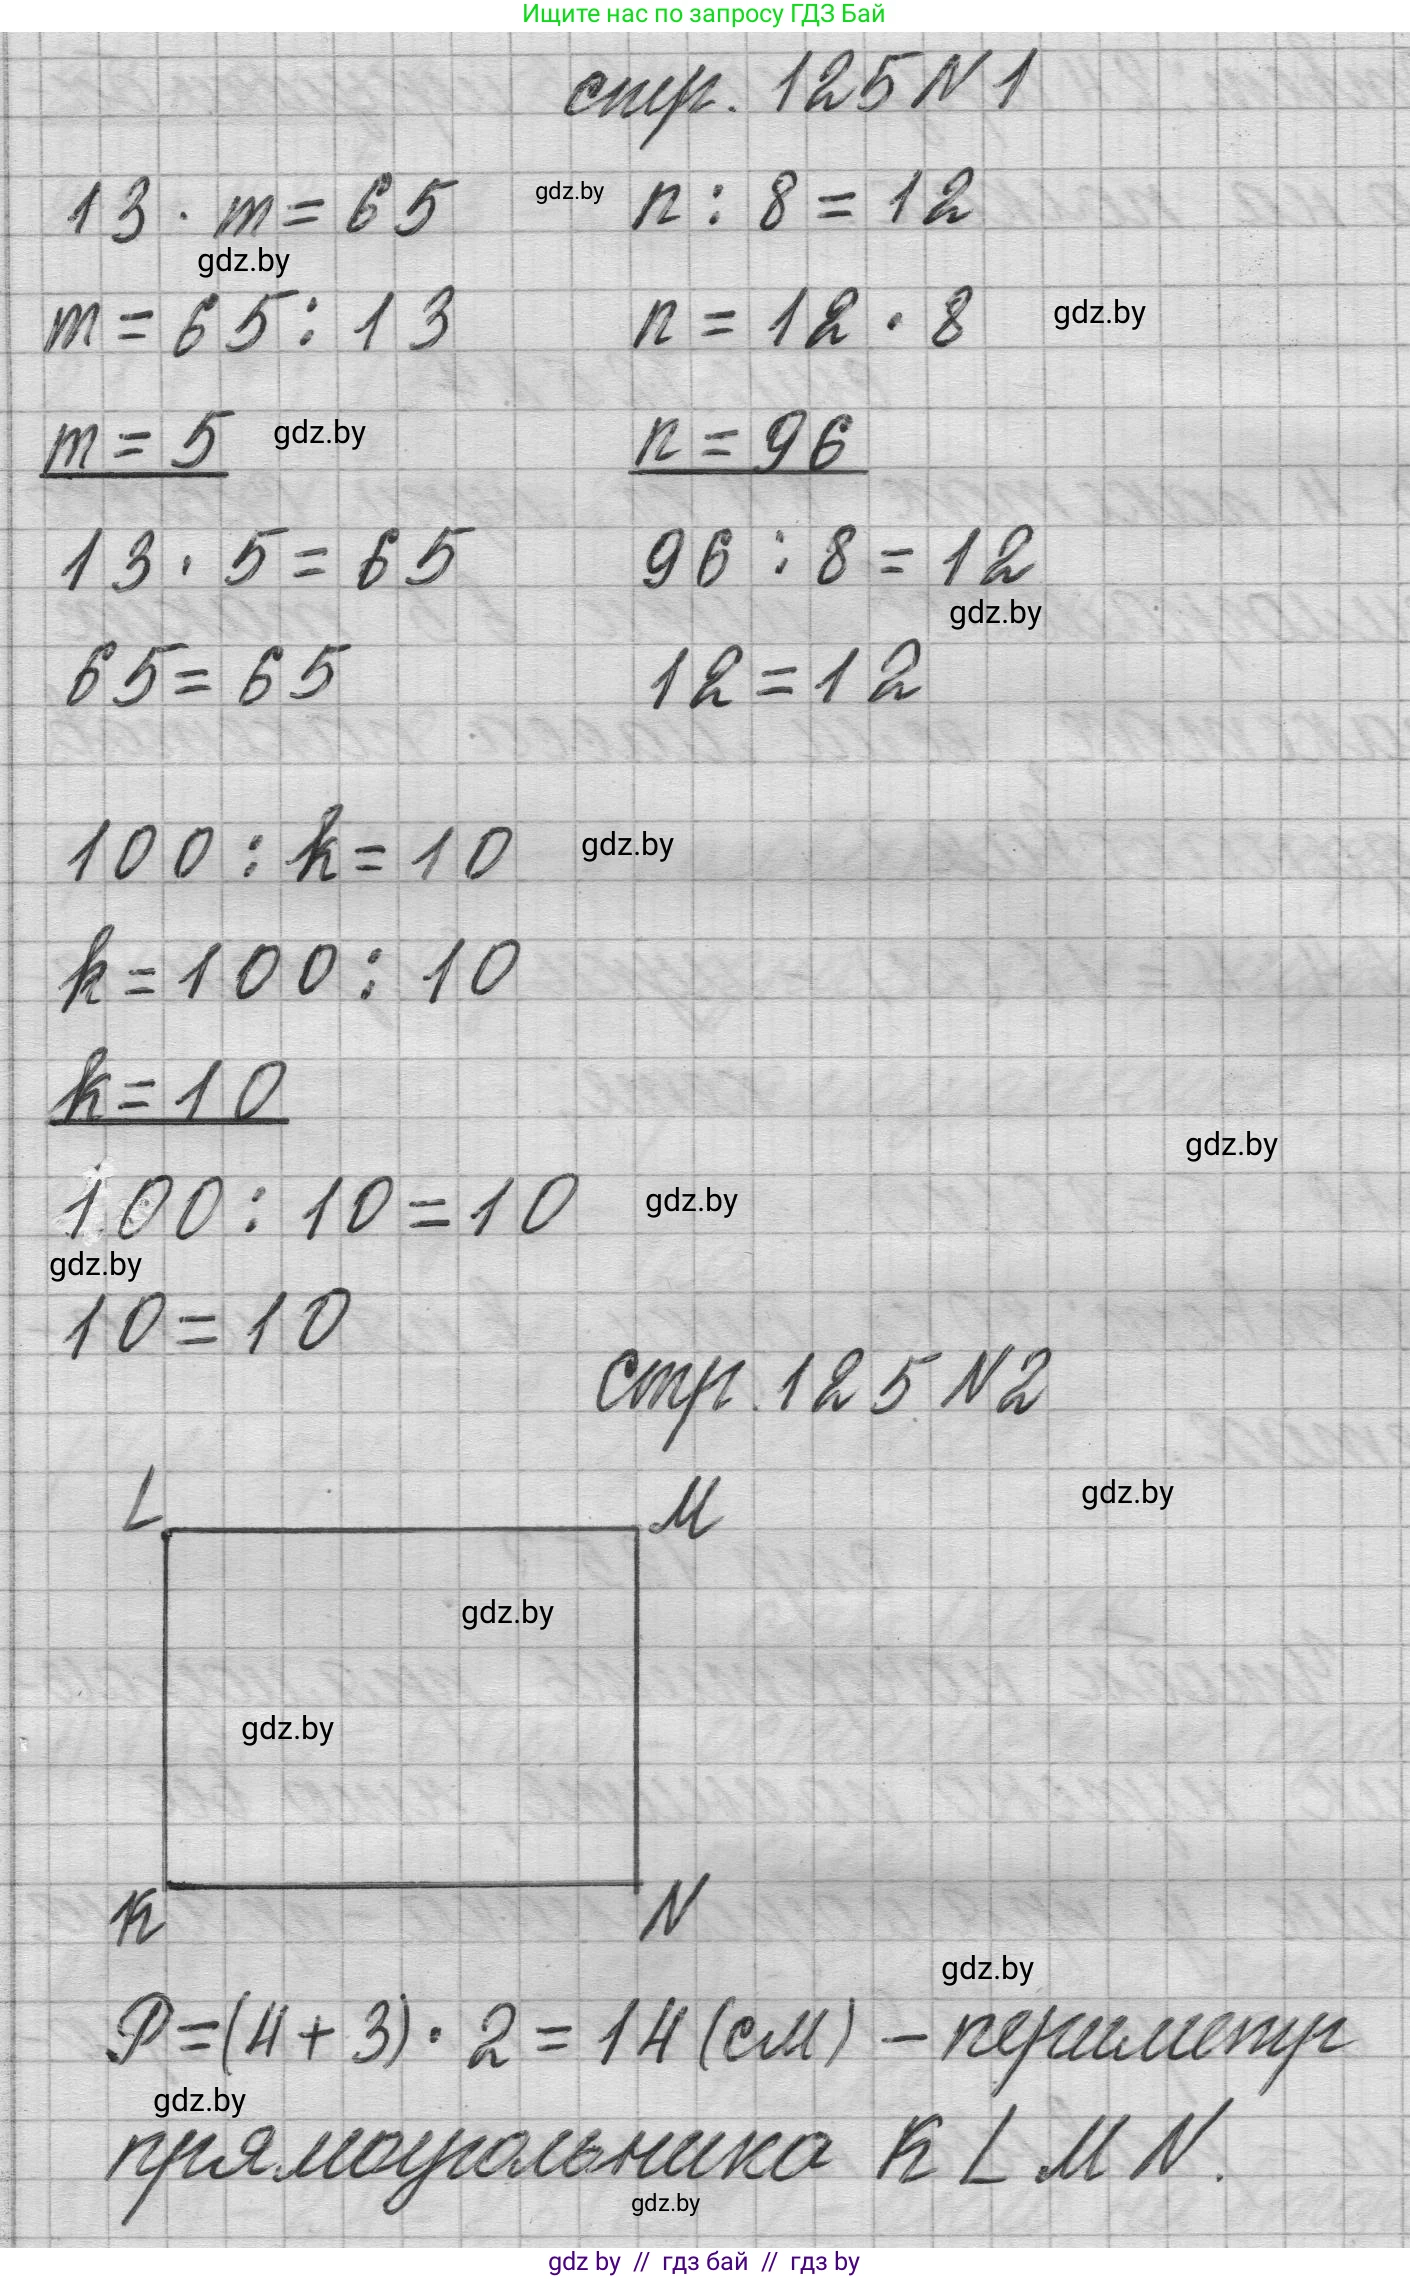 Ищите нас по запросу ГДЗ Бай
стр. 125 N 1
13 · m = 65
gdz.by
n : 8 = 12
gdz.by
m = 65 : 13
n = 12 · 8
gdz.by
m = 5
gdz.by
n = 96
13 · 5 = 65
96 : 8 = 12
gdz.by
65 = 65
12 = 12
100 : k = 10
gdz.by
k = 100 : 10
k = 10
gdz.by
100 : 10 = 10
gdz.by
gdz.by
10 = 10
стр. 125 N 2
L
M
gdz.by
gdz.by
gdz.by
K
N
gdz.by
P = (4 + 3) · 2 = 14 (см) – периметр
gdz.by
прямоугольника K L M N.
gdz.by
gdz by // гдз бай // гдз by